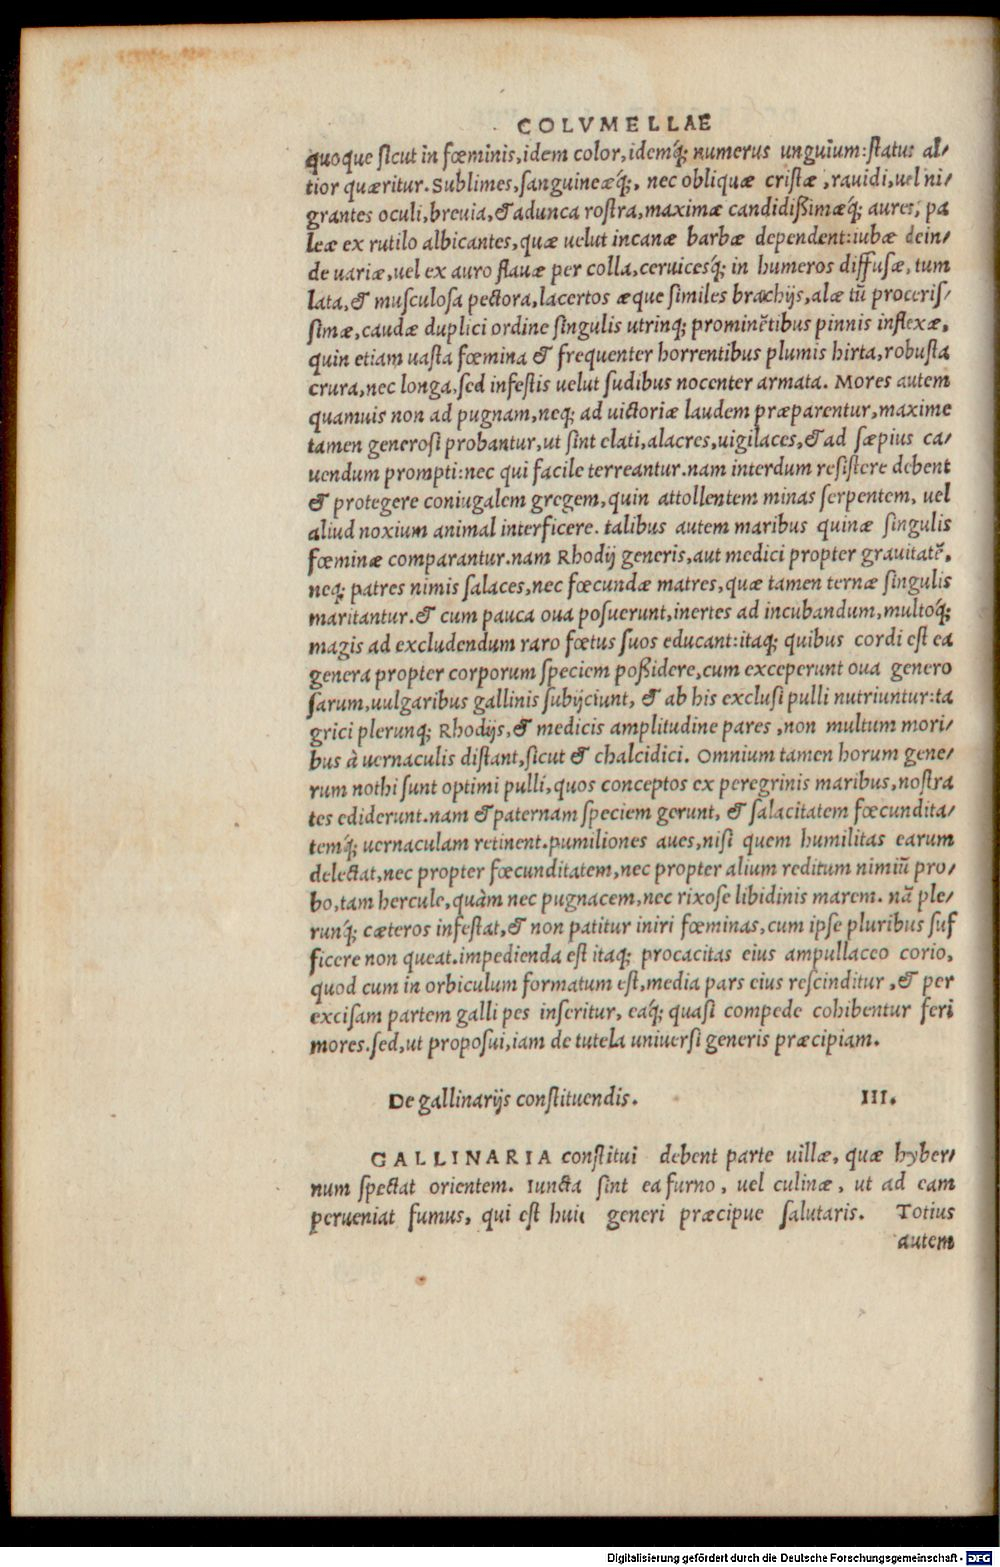 COLVMELLAE
quoque ſicut in fœminis,idem color,idemq́; numerus unguium:ſtatus al/
tior quæritur.Sublimes,ſanguineæq́;, nec obliquæ criſtæ ,rauidi,uel ni/
grantes oculi,breuia,& adunca roſtra,maximæ candidiſsimæq́; aures, pa
leæ ex rutilo albicantes,quæ uelut incanæ barbæ dependent:iubæ dein/
de uariæ,uel ex auro flauæ per colla,ceruicesq́; in humeros diffuſæ,tum
lata,& muſculoſa pectora,lacertos æque ſimiles brachijs,alæ tũ proceriſ/
ſimæ,caudæ duplici ordine ſingulis utrinq; prominẽtibus pinnis inflexæ,
quin etiam uaſta fœmina & frequenter horrentibus plumis hirta,robuſta
crura,nec longa,ſed infeſtis uelut ſudibus nocenter armata. Mores autem
quamuis non ad pugnam,neq; ad uictoriæ laudem præparentur,maxime
tamen generoſi probantur,ut ſint elati,alacres,uigilaces,& ad ſæpius ca/
uendum prompti:nec qui facile terreantur.nam interdum reſiſtere debent
& protegere coniugalem gregem,quin attollentem minas ſerpentem, uel
aliud noxium animal interficere. talibus autem maribus quinæ ſingulis
fœminæ comparantur.nam Rhodij generis,aut medici propter grauitatẽ,
neq; patres nimis ſalaces,nec fœcundæ matres,quæ tamen ternæ ſingulis
maritantur.& cum pauca oua poſuerunt,inertes ad incubandum,multoq́;
magis ad excludendum raro fœtus ſuos educant:itaq; quibus cordi eſt ea
genera propter corporum ſpeciem poſsidere,cum exceperunt oua genero
ſarum,uulgaribus gallinis ſubijciunt, & ab his excluſi pulli nutriuntur:ta
grici plerunq; Rhodijs,& medicis amplitudine pares ,non multum mori/
bus à uernaculis diſtant,ſicut & chalcidici. Omnium tamen horum gene/
rum nothi ſunt optimi pulli,quos conceptos ex peregrinis maribus,noſtra
tes ediderunt.nam & paternam ſpeciem gerunt, & ſalacitatem fœcundita/
temq́; uernaculam retinent.pumiliones aues,niſi quem humilitas earum
delectat,nec propter fœcunditatem,nec propter alium reditum nimiũ pro/
bo,tam hercule,quàm nec pugnacem,nec rixoſe libidinis marem. nã ple/
runq́; cæteros infeſtat,& non patitur iniri fœminas,cum ipſe pluribus ſuf
ficere non queat.impedienda eſt itaq; procacitas eius ampullaceo corio,
quod cum in orbiculum formatum eſt,media pars eius reſcinditur ,& per
exciſam partem galli pes inſeritur, eaq́; quaſi compede cohibentur feri
mores.ſed,ut propoſui,iam de tutela uniuerſi generis præcipiam.
De gallinarijs conſtituendis. III.
GALLINARIA conſtitui debent parte uillæ, quæ hyber/
num ſpectat orientem. Iuncta ſint ea furno, uel culinæ, ut ad eam
perueniat fumus, qui eſt huic generi præcipue ſalutaris. Totius
autem
Digitalisierung gefördert durch die Deutsche Forschungsgemeinschaft - DFG